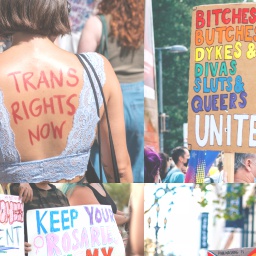 TRANS
RIGHTS
NOW
BITCHES
BUTCHES
DYKES &
DIVAS
SLUTS &
QUEERS
UNITE
KEEP YOUR
ROSARIES
MY
ENT